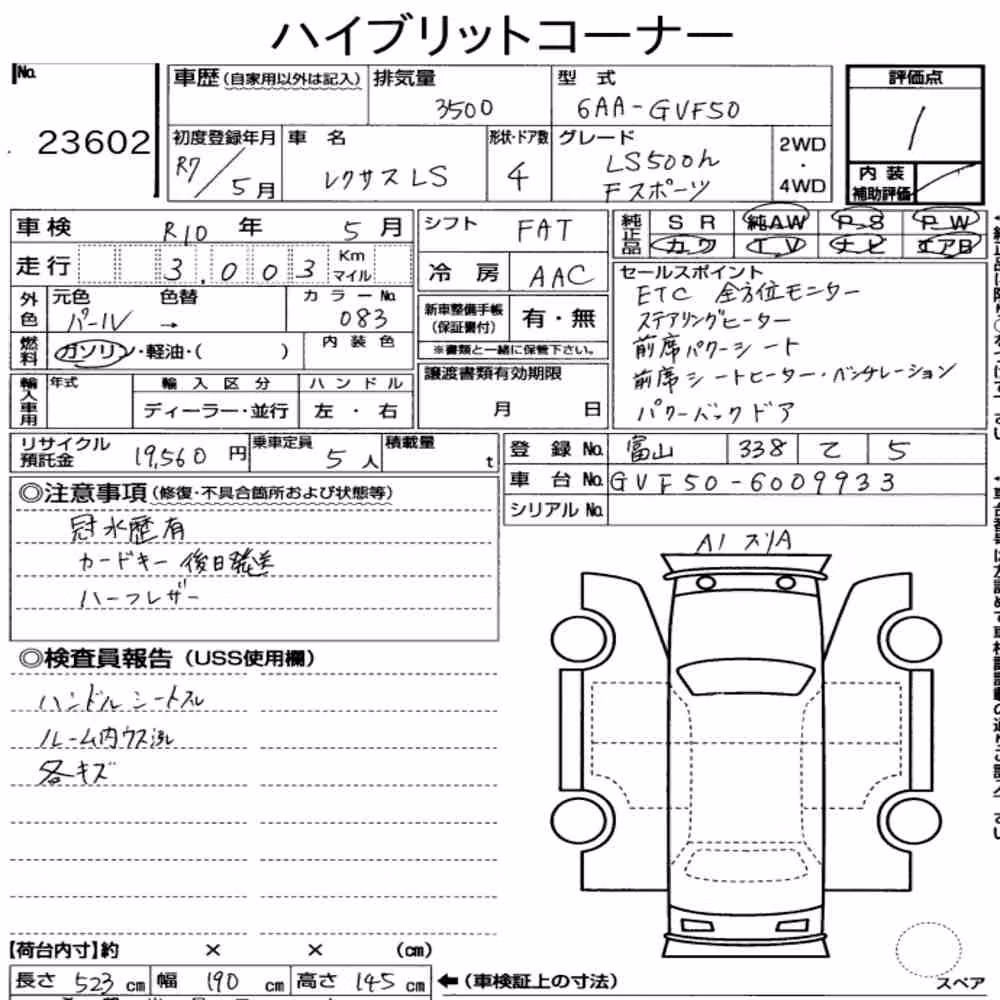 ハイブリットコーナー
No. 23602
車歴(自家用以外は記入) 排気量 3500 型 式 6AA-GVF50
初度登録年月 R7/5月 車 名 レクサスLS 形状・ドア数 4 グレード LS500h Fスポーツ 2WD・4WD
評価点 1
内 装 補助評価
車検 R10 年 5 月
走行 3.003 Km マイル
外色 元色 パール 色替 → カラーNo. 083
燃料 ガソリン・軽油・( ) 内 装 色
輸入車用 年式 輸 入 区 分 ディーラー・並行 ハ ン ド ル 左 ・ 右
シフト FAT
冷 房 AAC
新車整備手帳(保証書付) 有・無
※書類と一緒に保管下さい。
譲渡書類有効期限
月 日
純正品 SR 純AW P-S P W
カワ TV ナビ エアB
セールスポイント
ETC 全方位モニター
ステアリングヒーター
前席パワーシート
前席シートヒーター・ベンチレーション
パワーバックドア
リサイクル預託金 19,560 円 乗車定員 5 人 積載量 t
登 録 No. 富山 338 て 5
車 台 No. GVF50-6009933
シリアル No.
◎注意事項(修復・不具合箇所および状態等)
冠水歴有
カードキー 後日発送
ハーフレザー
◎検査員報告(USS使用欄)
ハンドルシートスレ
ルーム内ウス汚レ
各キズ
A1 スリA
【荷台内寸】約 × × (cm)
長さ 523 cm 幅 190 cm 高さ 145 cm ←(車検証上の寸法)
スペア